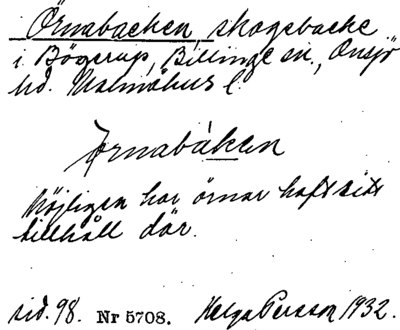 Örnabacken, skogsbacke
i Bögerup, Billinge sn., Onsjö
hd. Malmöhus l.
Ørnabáken
Möjligen har örnar haft sitt
tillhåll där.
sid. 98. Nr 5708. Helga Persson 1932.